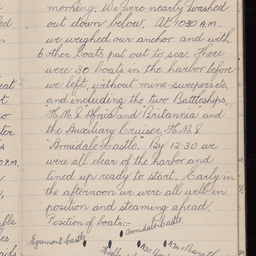 morning. We were nearly washed
out down below. At 10.30 A.M.
we weighed our anchor and with
6 other boats put out to sea. There
were 30 boats in the harbor before
we left, without mine-sweepers etc,
and including the two Battleships,
H.M.S "Africa and "Britannia" and
the Auxiliary Cruiser, H.M.S
"Armidale-Castle. By 12-30 we
were all clear of the harbor and
lined up ready to start. Early in
the afternoon we were all well in
position and steaming ahead.
Position of boats:-
Armidale-Castle
Egremont-Castle